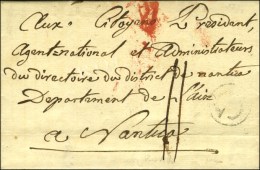 Aux Citoyens Président,
Agent national et Administrateurs
du directoire du district de nantua
Departement de l'Ain
a Nantua